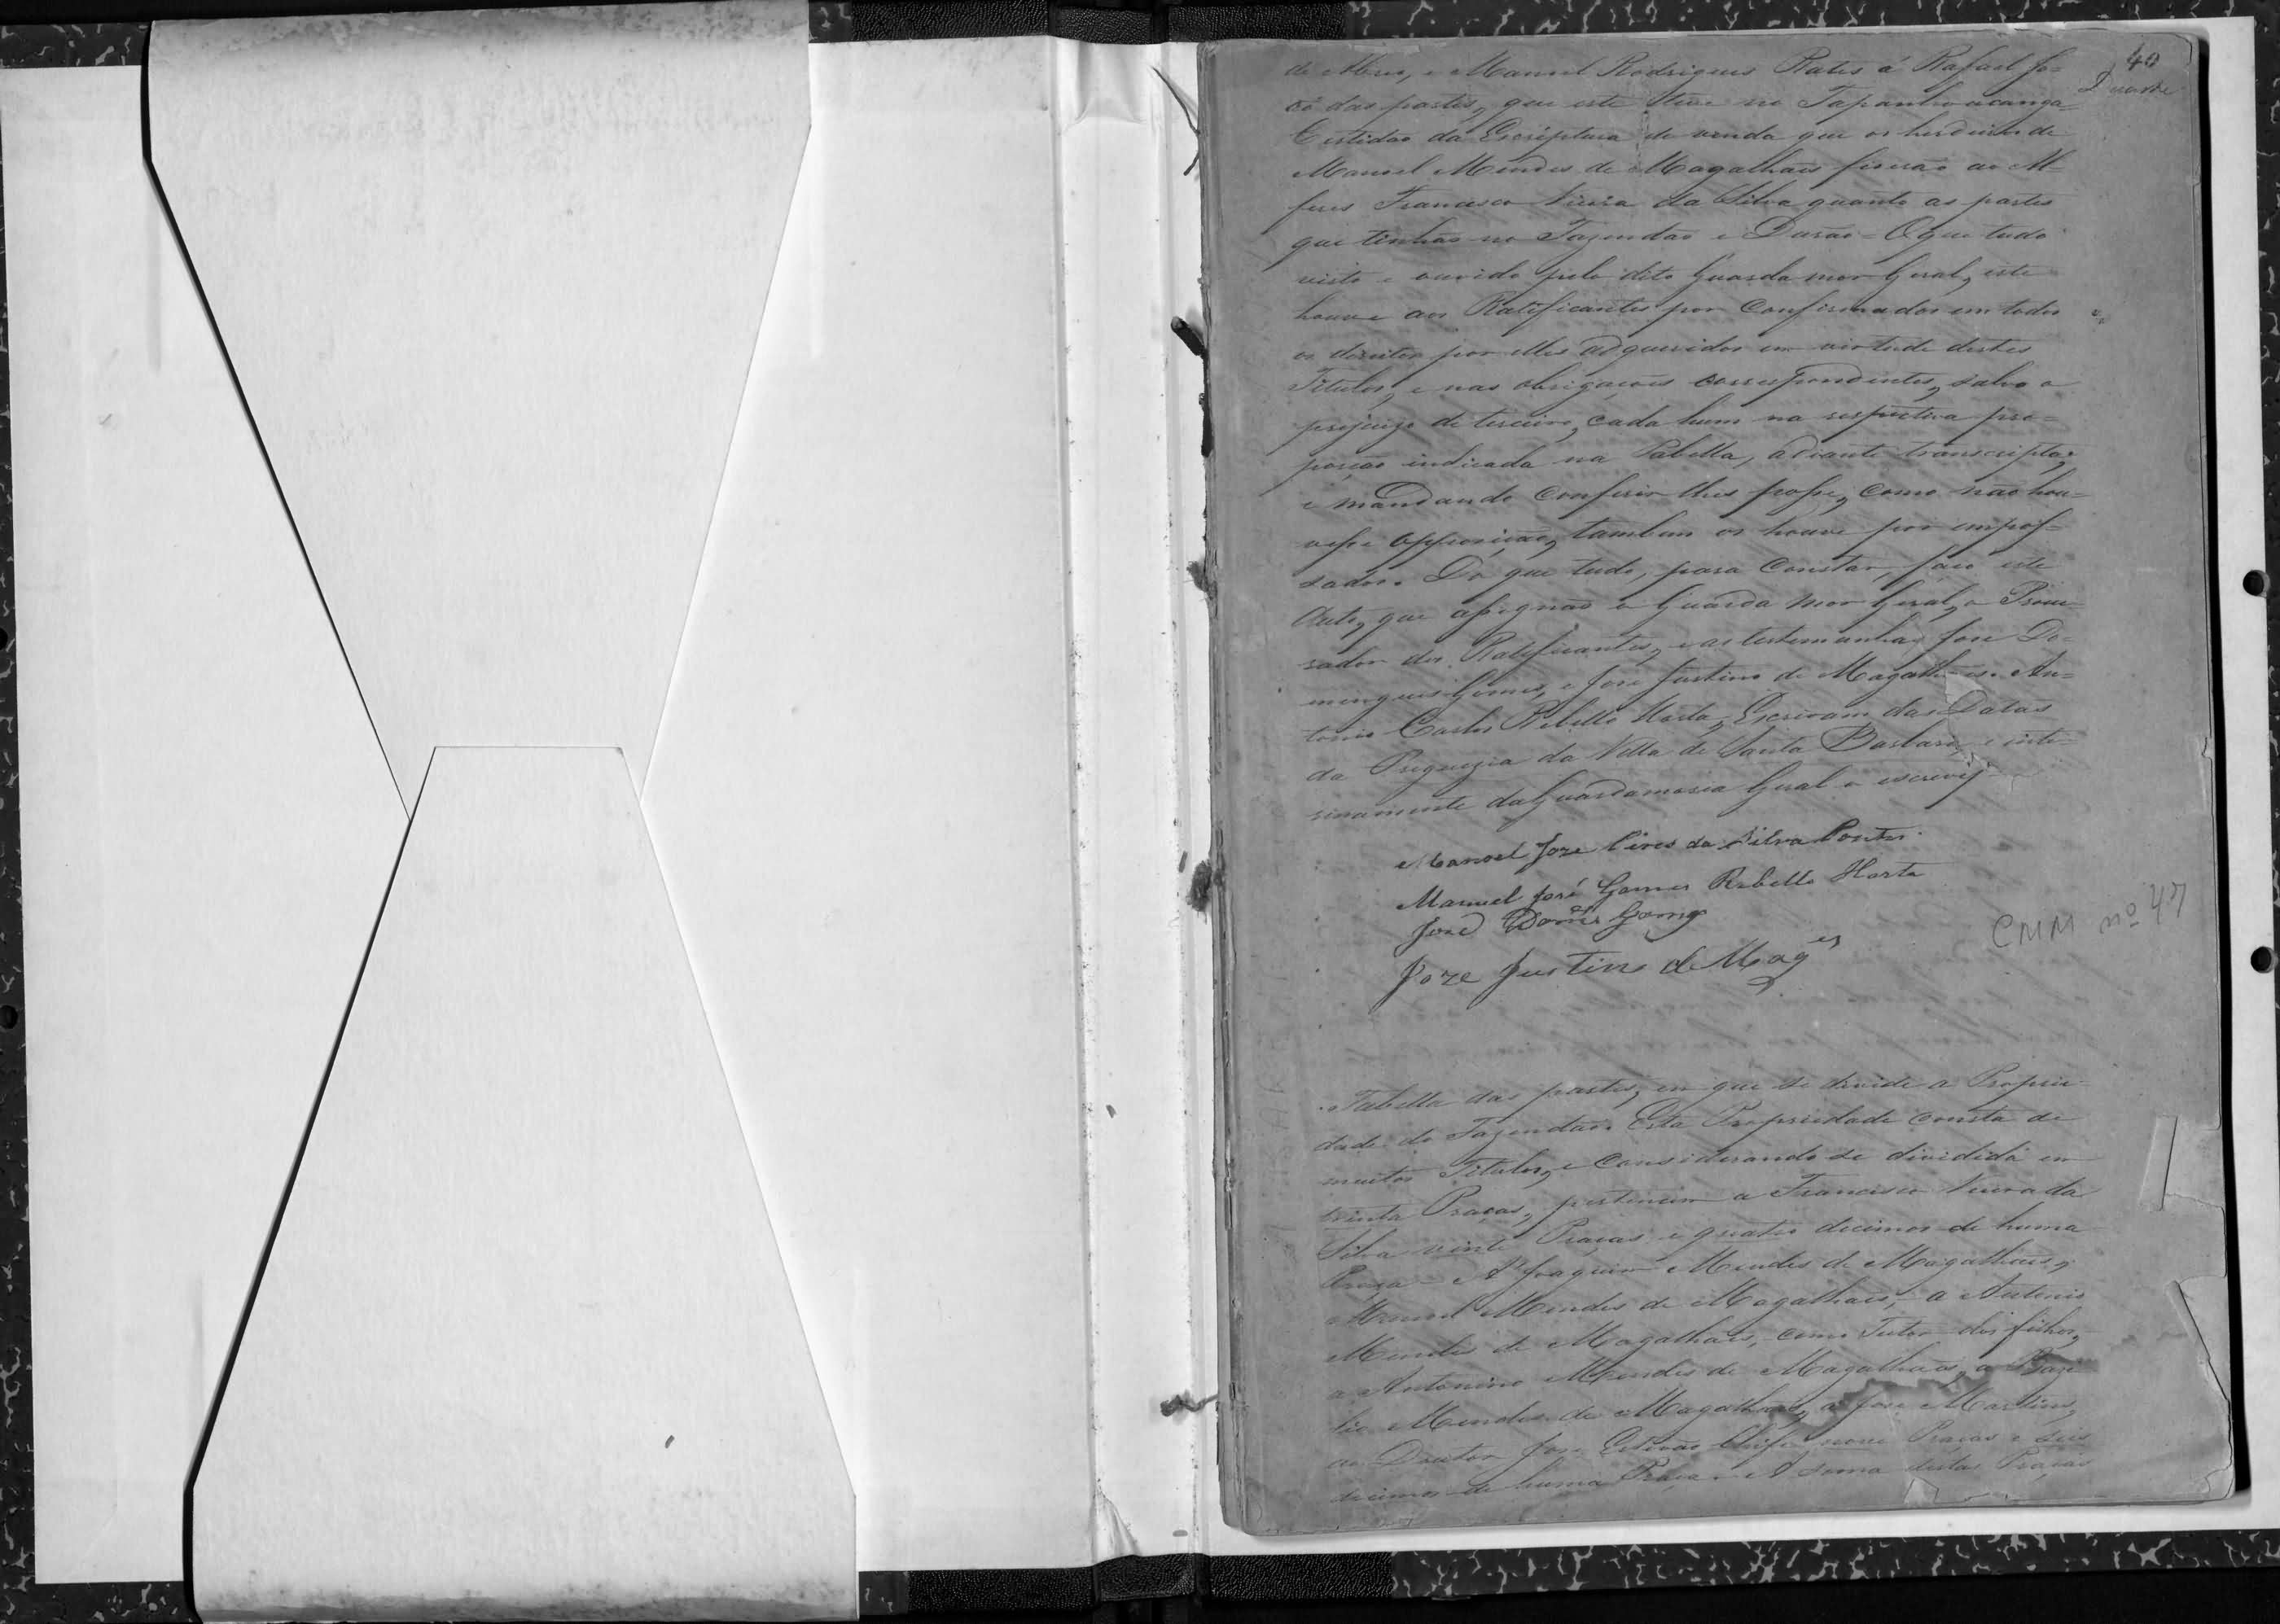 40
Duarte
de Abreu, e Manoel Rodrigues Prates á Rafael Jo=
zé das partes, que este teve no Tapanhoacanga=
Certidão da Escriptura de venda que os herdeiros de
Manoel Mendes de Magalhães fizerão ao Al=
feres Francisco Vieira da Silva quanto as partes
que tinhão no Fazendão e Durão = O que tudo
visto e ouvido pelo dito Guarda mor Geral, este
houve aos Ratificantes por Confirmados em todos os
os direitos por elles adqueridos em virtude destes
Titulos, e nas obrigaçoens correspondentes, salvo o
prejuizo de terceiro, cada hum na respectiva pro=
porção indicada na Tabella, adiante transcripta,
e mandando conferir lhes posse, como não hou=
vesse opposição, tambem os houve por empos=
sados. Do que tudo, para constar, faço este
Auto, que assignão o Guarda Mor Geral, o Procu=
rador dos Ratificantes, e as testemunhas Jose Do=
mingues Gomes, e Jose Justino de Magalhães. An=
tonio Carlos Rebello Horta, Escrivam das Datas
da Freguezia da Villa de Santa Barbara, e inte=
rinamente da Guardamoria Geral o escrevy
Manoel Joze Pires da Silva Pontes
Manuel José Gomes Rebello Horta
José Domes Gomes
Joze Justino de Mages
CMM nº 47
Tabella das partes, em que se divide a Proprie=
dade do Fazendão. Esta Propriedade consta de
muitos Titulos, e considerando se dividida em
trinta Praças, pertencem a Francisco Vieira da
Silva vinte Praças e quatro decimos de huma
Praça = A Joaquim Mendes de Magalhães,
a Manoel Mendes de Magalhães, a Antonio
Mendes de Magalhães, como Tutor dos filhos,
a Antonino Mendes de Magalhães, a Bazi
lio Mendes de Magalhães, a Jose Martins,
ao Doutor Jose Estevão nove Praças e seis
decimos de huma Praça. A soma destas Praças